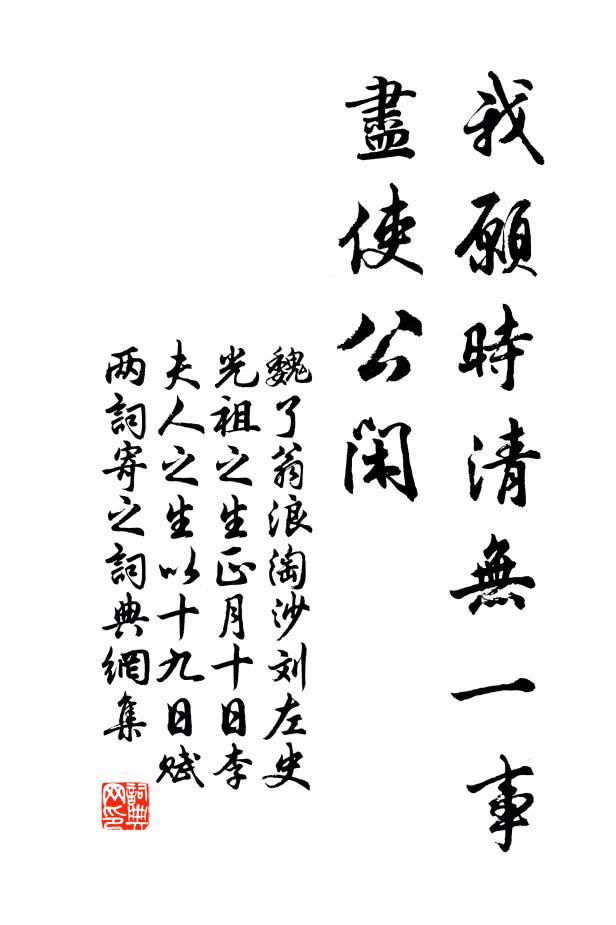 我願時清無一事
盡使公閑
魏了翁浪淘沙刘左史
光祖之生正月十日李
夫人之生以十九日赋
两詞寄之詞典網集
詞典
网印